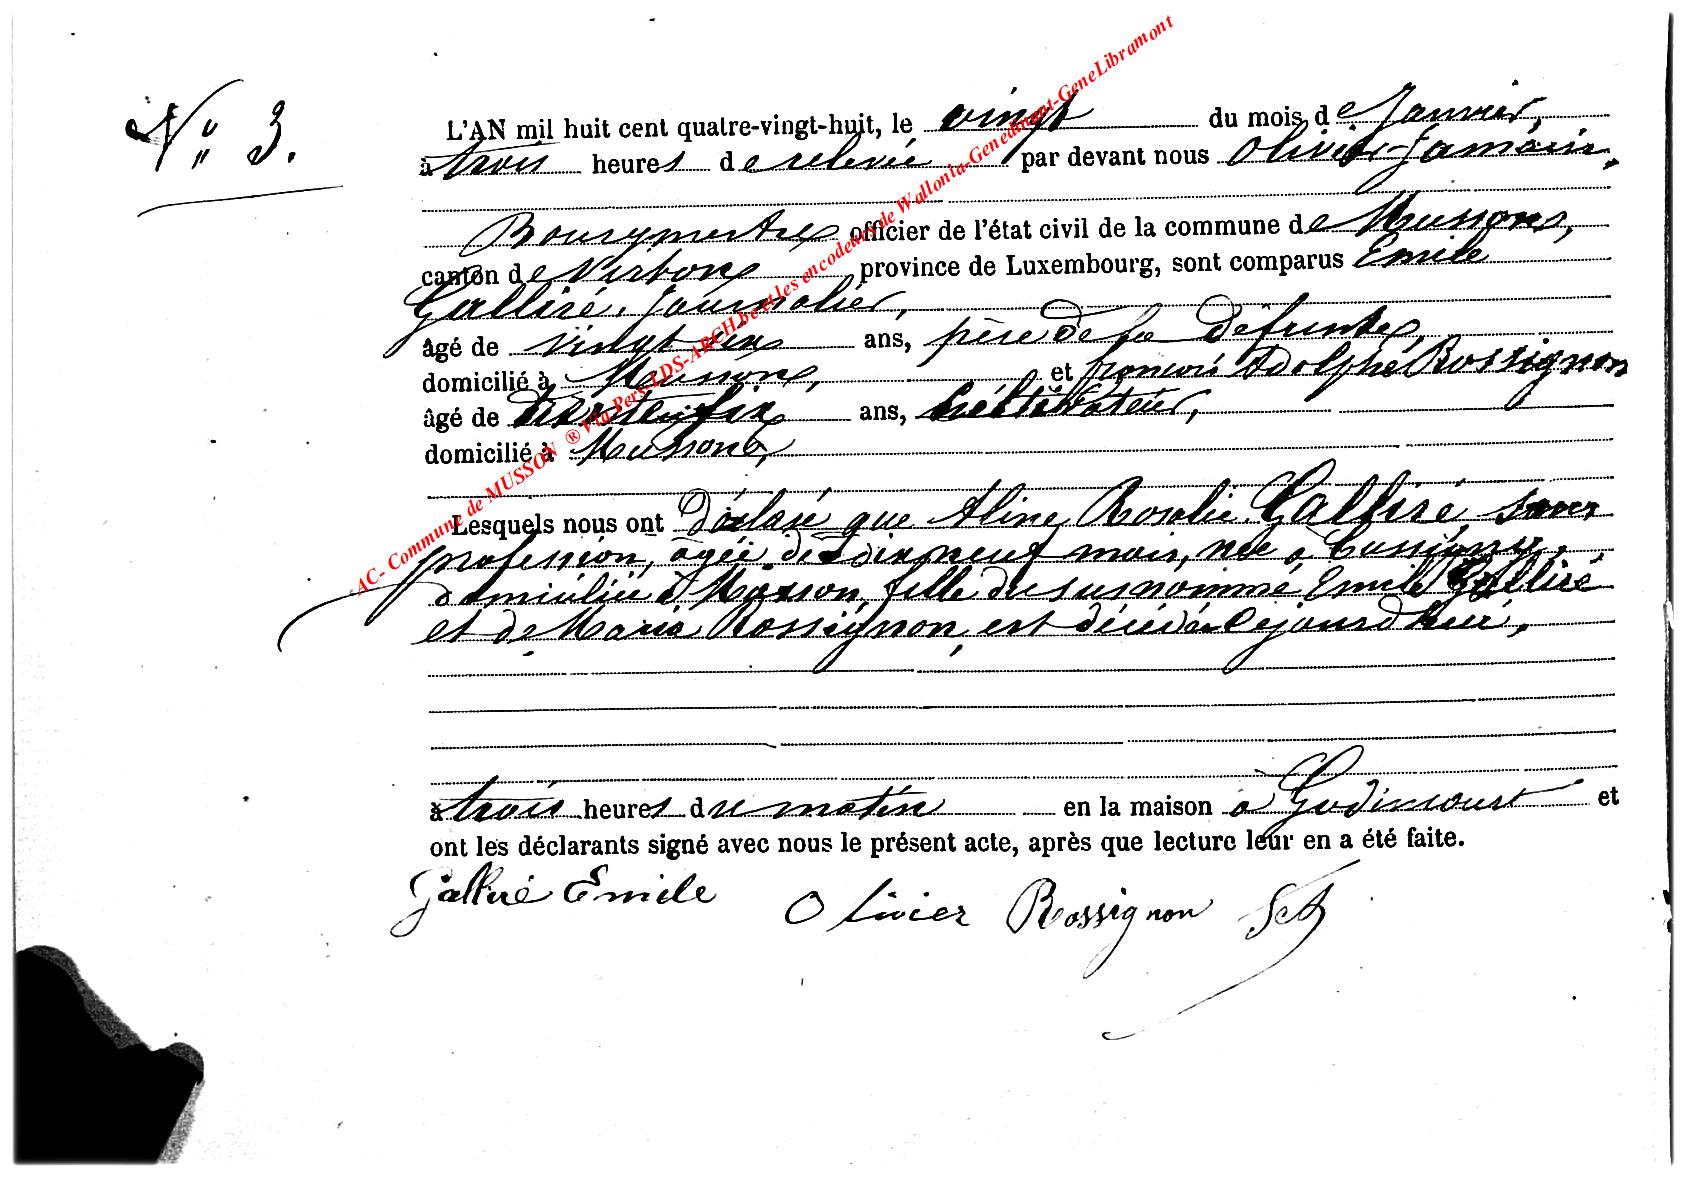 N° 3.
L'AN mil huit cent quatre-vingt-huit, le vingt du mois de Janvier,
à trois heures de relevée par devant nous Olivier Jamain,
Bourgmestre officier de l'état civil de la commune de Musson,
canton de Virton province de Luxembourg, sont comparus Emile
Galliré, journalier,
âgé de vingt six ans, père de la défunte,
domicilié à Musson, et françois Adolphe Rossignon
âgé de ans, cultivateur,
domicilié à Musson,
Lesquels nous ont déclaré que Aline Rosalie Galliré, sans
profession, agée de dix neuf mois, née à Cussigny,
domiciliée à Musson, fille du susnommé Emile Galliré
et de Maria Rossignon, est décédée cejourd'hui,
à trois heures du matin en la maison à Godincourt et
ont les déclarants signé avec nous le présent acte, après que lecture leur en a été faite.
Galliré Emile Olivier Rossignon
AC- Commune de MUSSON ® Via Pers-LDS-ARCH.be et les encodeurs de Wallonia-Genedinant-GeneLibramont